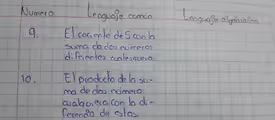 Numero Lenguaje común Lenguaje algebraico
9. El cociente de 5 con la
suma de dos números
diferentes cualesquiera
10. El producto de la su-
ma de dos número
cualquiera con la di-
ferencia de estos